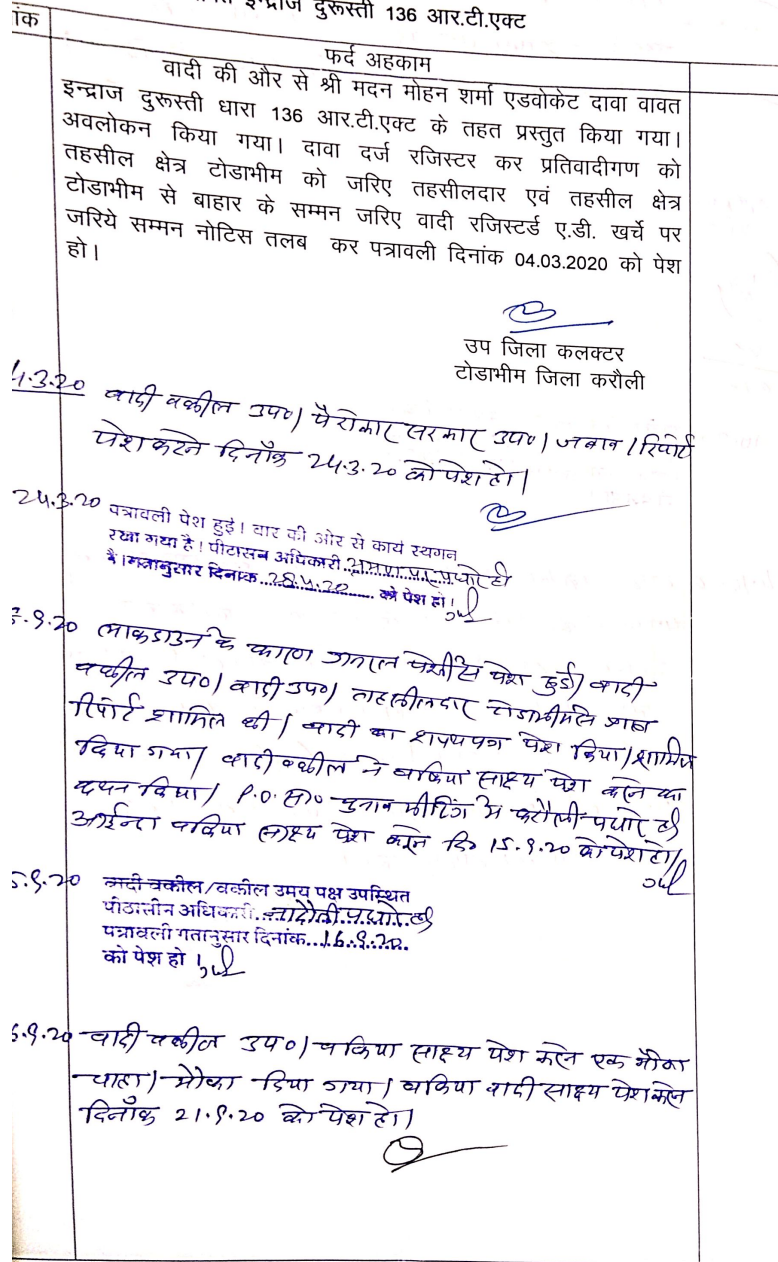 इन्द्राज दुरूस्ती 136 आर.टी.एक्ट
फर्द अहकाम
वादी की और से श्री मदन मोहन शर्मा एडवोकेट दावा वावत
इन्द्राज दुरूस्ती धारा 136 आर.टी.एक्ट के तहत प्रस्तुत किया गया।
अवलोकन किया गया। दावा दर्ज रजिस्टर कर प्रतिवादीगण को
तहसील क्षेत्र टोडाभीम को जरिए तहसीलदार एवं तहसील क्षेत्र
टोडाभीम से बाहार के सम्मन जरिए वादी रजिस्टर्ड ए.डी. खर्चे पर
जरिये सम्मन नोटिस तलब कर पत्रावली दिनांक 04.03.2020 को पेश
हो।
उप जिला कलक्टर
टोडाभीम जिला करौली
4.3.20 वादी वकील उप०। पैरोकार सरकार उप०। जबाव/रिपोर्ट
पेश करने दिनाँक 24.3.20 को पेश हो।
24.3.20 पत्रावली पेश हुई। बार की ओर से कार्य स्थगन
रखा गया है। पीटासन अधिकारी पधारे है
है। गतानुसार दिनांक 28.4.20 को पेश हो।
.9.20 लाकडाउन के कारण पेश हुई। वादी
वकील उप०। वादी उप०। तहसीलदार टोडाभीम से प्राप्त
रिपोर्ट शामिल की। वादी का शपथपत्र पेश किया। शामिल
किया गया। वादी वकील ने बकिया साक्ष्य पेश करने का
कथन किया। P.O. सा० चुनाव मीटिंग में करौली पधारे है
आईन्दा बकिया साक्ष्य पेश करने दि० 15.9.20 को पेश हो।
5.9.20 वादी वकील/वकील उमय पक्ष उपस्थित
पीठासीन अधिकारी नादौती पधारे है
पत्रावली गतानुसार दिनांक 16.9.20
को पेश हो।
6.9.20 वादी वकील उप०। बकिया साक्ष्य पेश करने एक मौका
चाहा। मौका दिया गया। बकिया वादी साक्ष्य पेश करने
दिनाँक 21.9.20 को पेश हो।